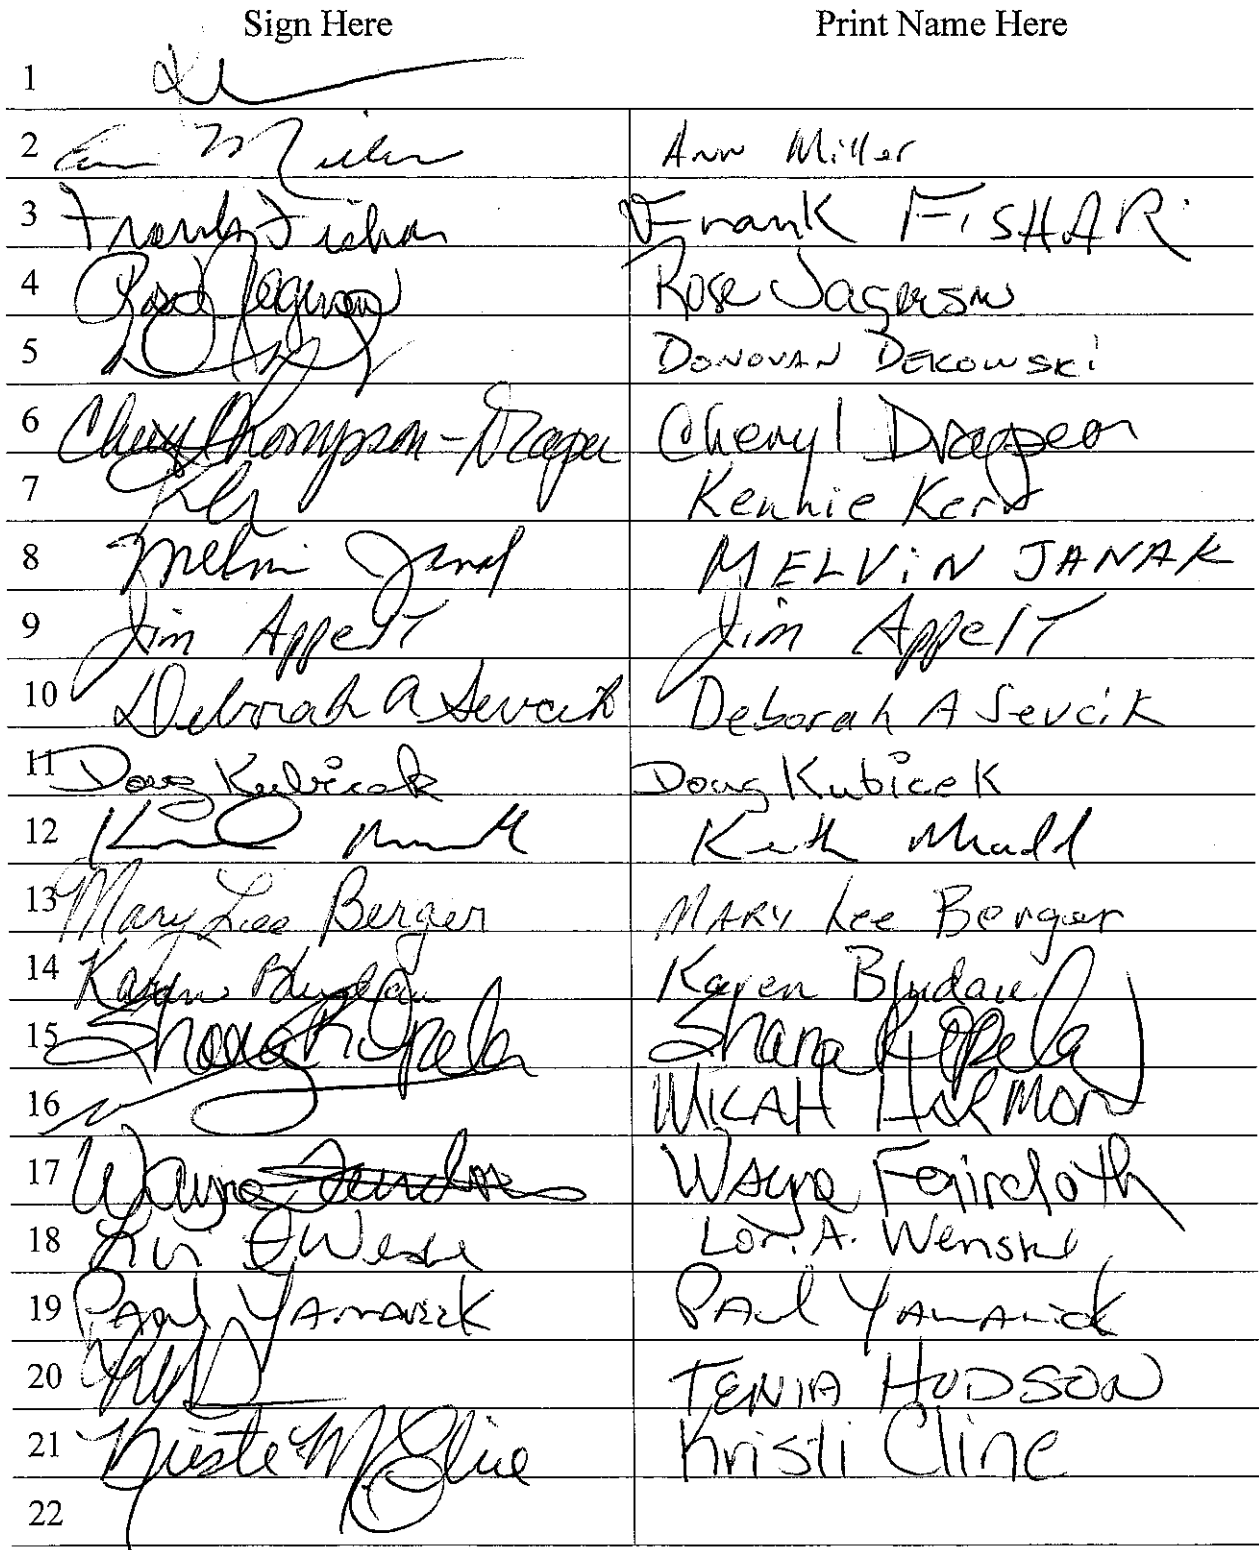 Sign Here Print Name Here
1
2 Ann Miller Ann Miller
3 Frank Fishar Frank FISHAR
4 Rose Rose
5 DONOVAN DEKOWSKI
6 Cheryl Thompson-Draper Cheryl Draper
7 Kennie Kerr
8 Melvin Janak MELVIN JANAK
9 Jim Appelt Jim Appelt
10 Deborah A Sevcik Deborah A Sevcik
11 Doug Kubicek Doug Kubicek
12 Keith Mudd
13 Mary Lee Berger MARY Lee Berger
14 Karen Bludau Karen Bludau
15 Shana R Opela Shana R Opela
16 MICAH HARMON
17 Wayne Wayne Faircloth
18 Lori A. Wenske
19 PAul YAMANICK PAul YAMANICK
20 TENIA HUDSON
21 Kristi M Cline Kristi Cline
22